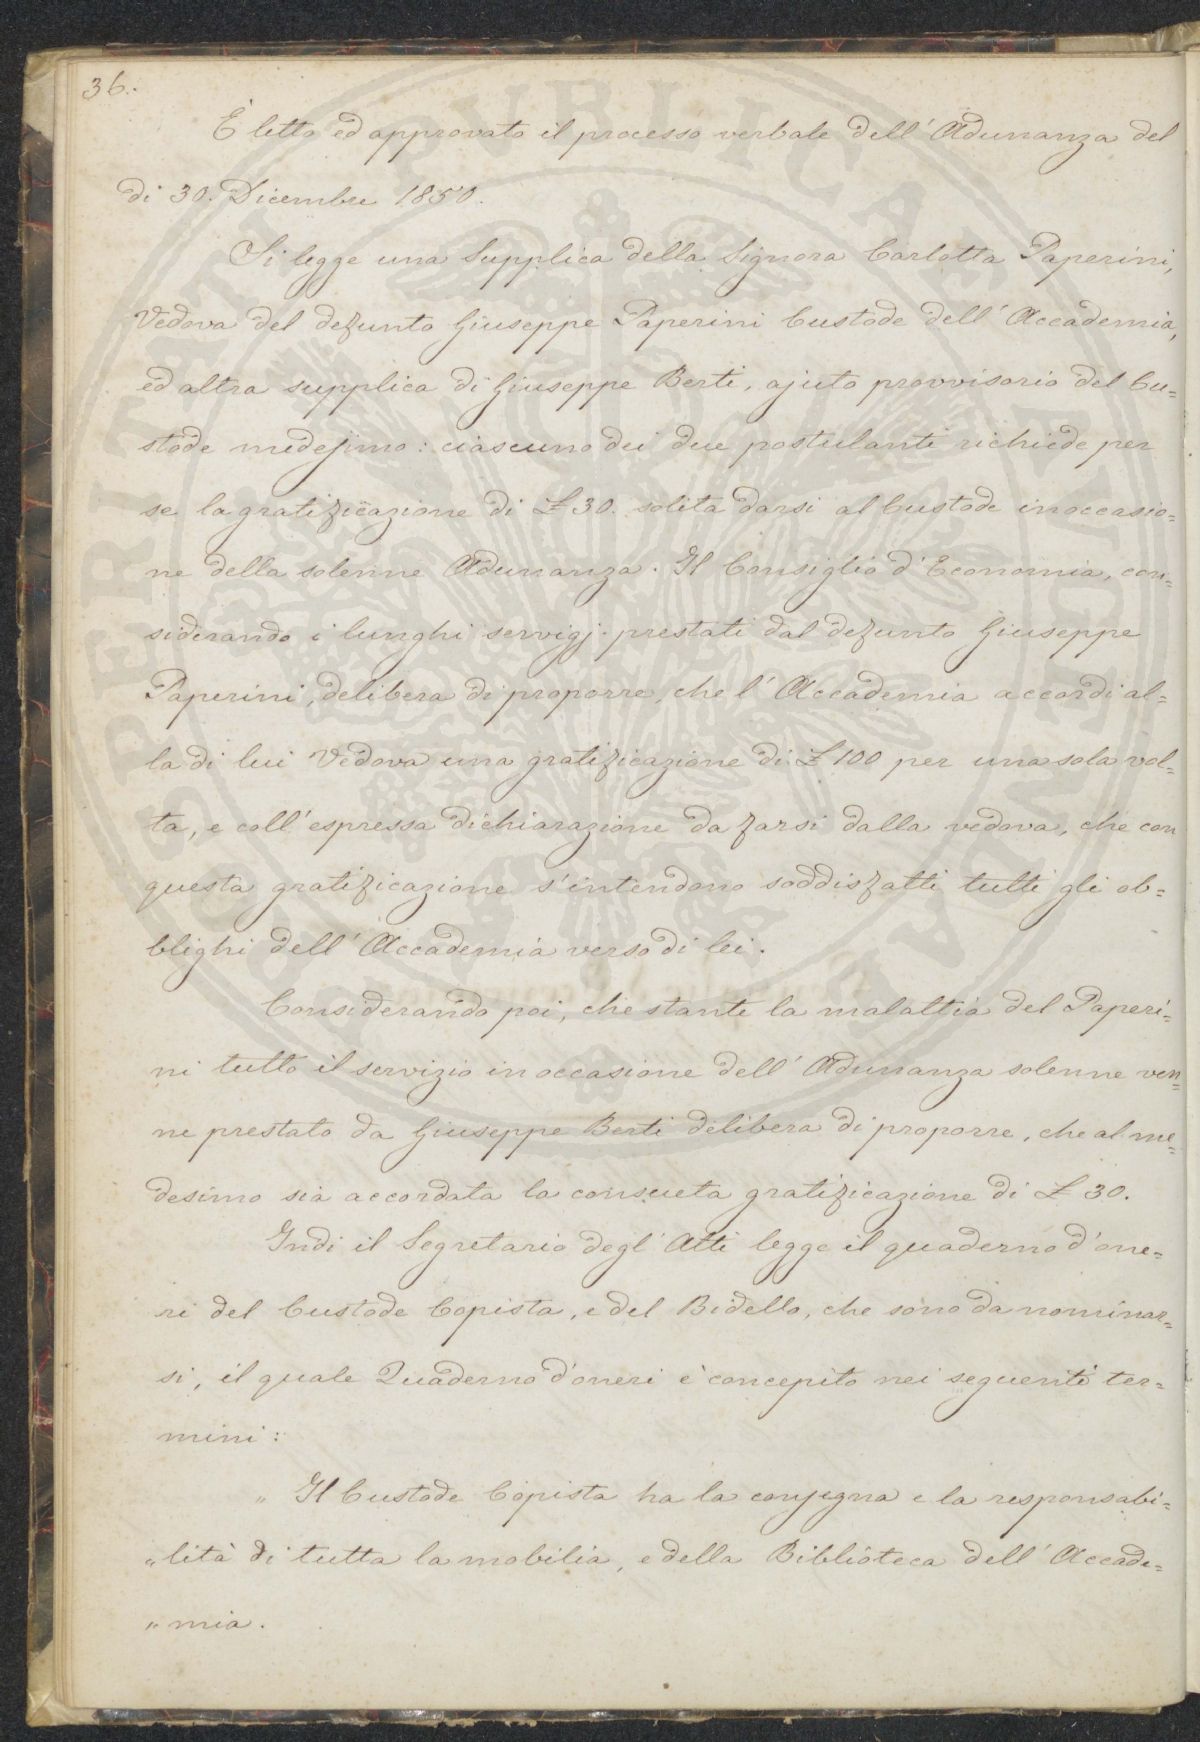 36.
È letto ed approvato il processo verbale dell'Adunanza del
di 30. Dicembre 1850.
Si legge una Supplica della Signora Carlotta Paperini,
Vedova del defunto Giuseppe Paperini Custode dell'Accademia,
ed altra supplica di Giuseppe Berti, ajuto provvisorio del Cu=
stode medesimo: ciascuno dei due postulanti richiede per
se la gratificazione di £ 30. solita darsi al Custode in occasio=
ne della solenne Adunanza. Il Consiglio d'Economia, con=
siderando i lunghi servigj prestati dal defunto Giuseppe
Paperini, delibera di proporre, che l'Accademia accordi al=
la di lui Vedova una gratificazione di £ 100 per una sola vol=
ta, e coll'espressa dichiarazione da farsi dalla vedova, che con
questa gratificazione s'intendono soddisfatti tutti gli ob=
blighi dell'Accademia verso di lei.
Considerando poi, che stante la malattia del Paperi=
ni tutto il servizio in occasione dell'Adunanza solenne ven=
ne prestato da Giuseppe Berti delibera di proporre, che al me=
desimo sia accordata la consueta gratificazione di £ 30.
Indi il Segretario degl'Atti legge il quaderno d'one=
ri del Custode Copista, e del Bidello, che sono da nominar=
si, il quale Quaderno d'oneri è concepito nei seguenti ter=
mini:
„ Il Custode Copista ha la consegna e la responsabi=
„ lità di tutta la mobilia, e della Biblioteca dell'Accade=
„ mia.